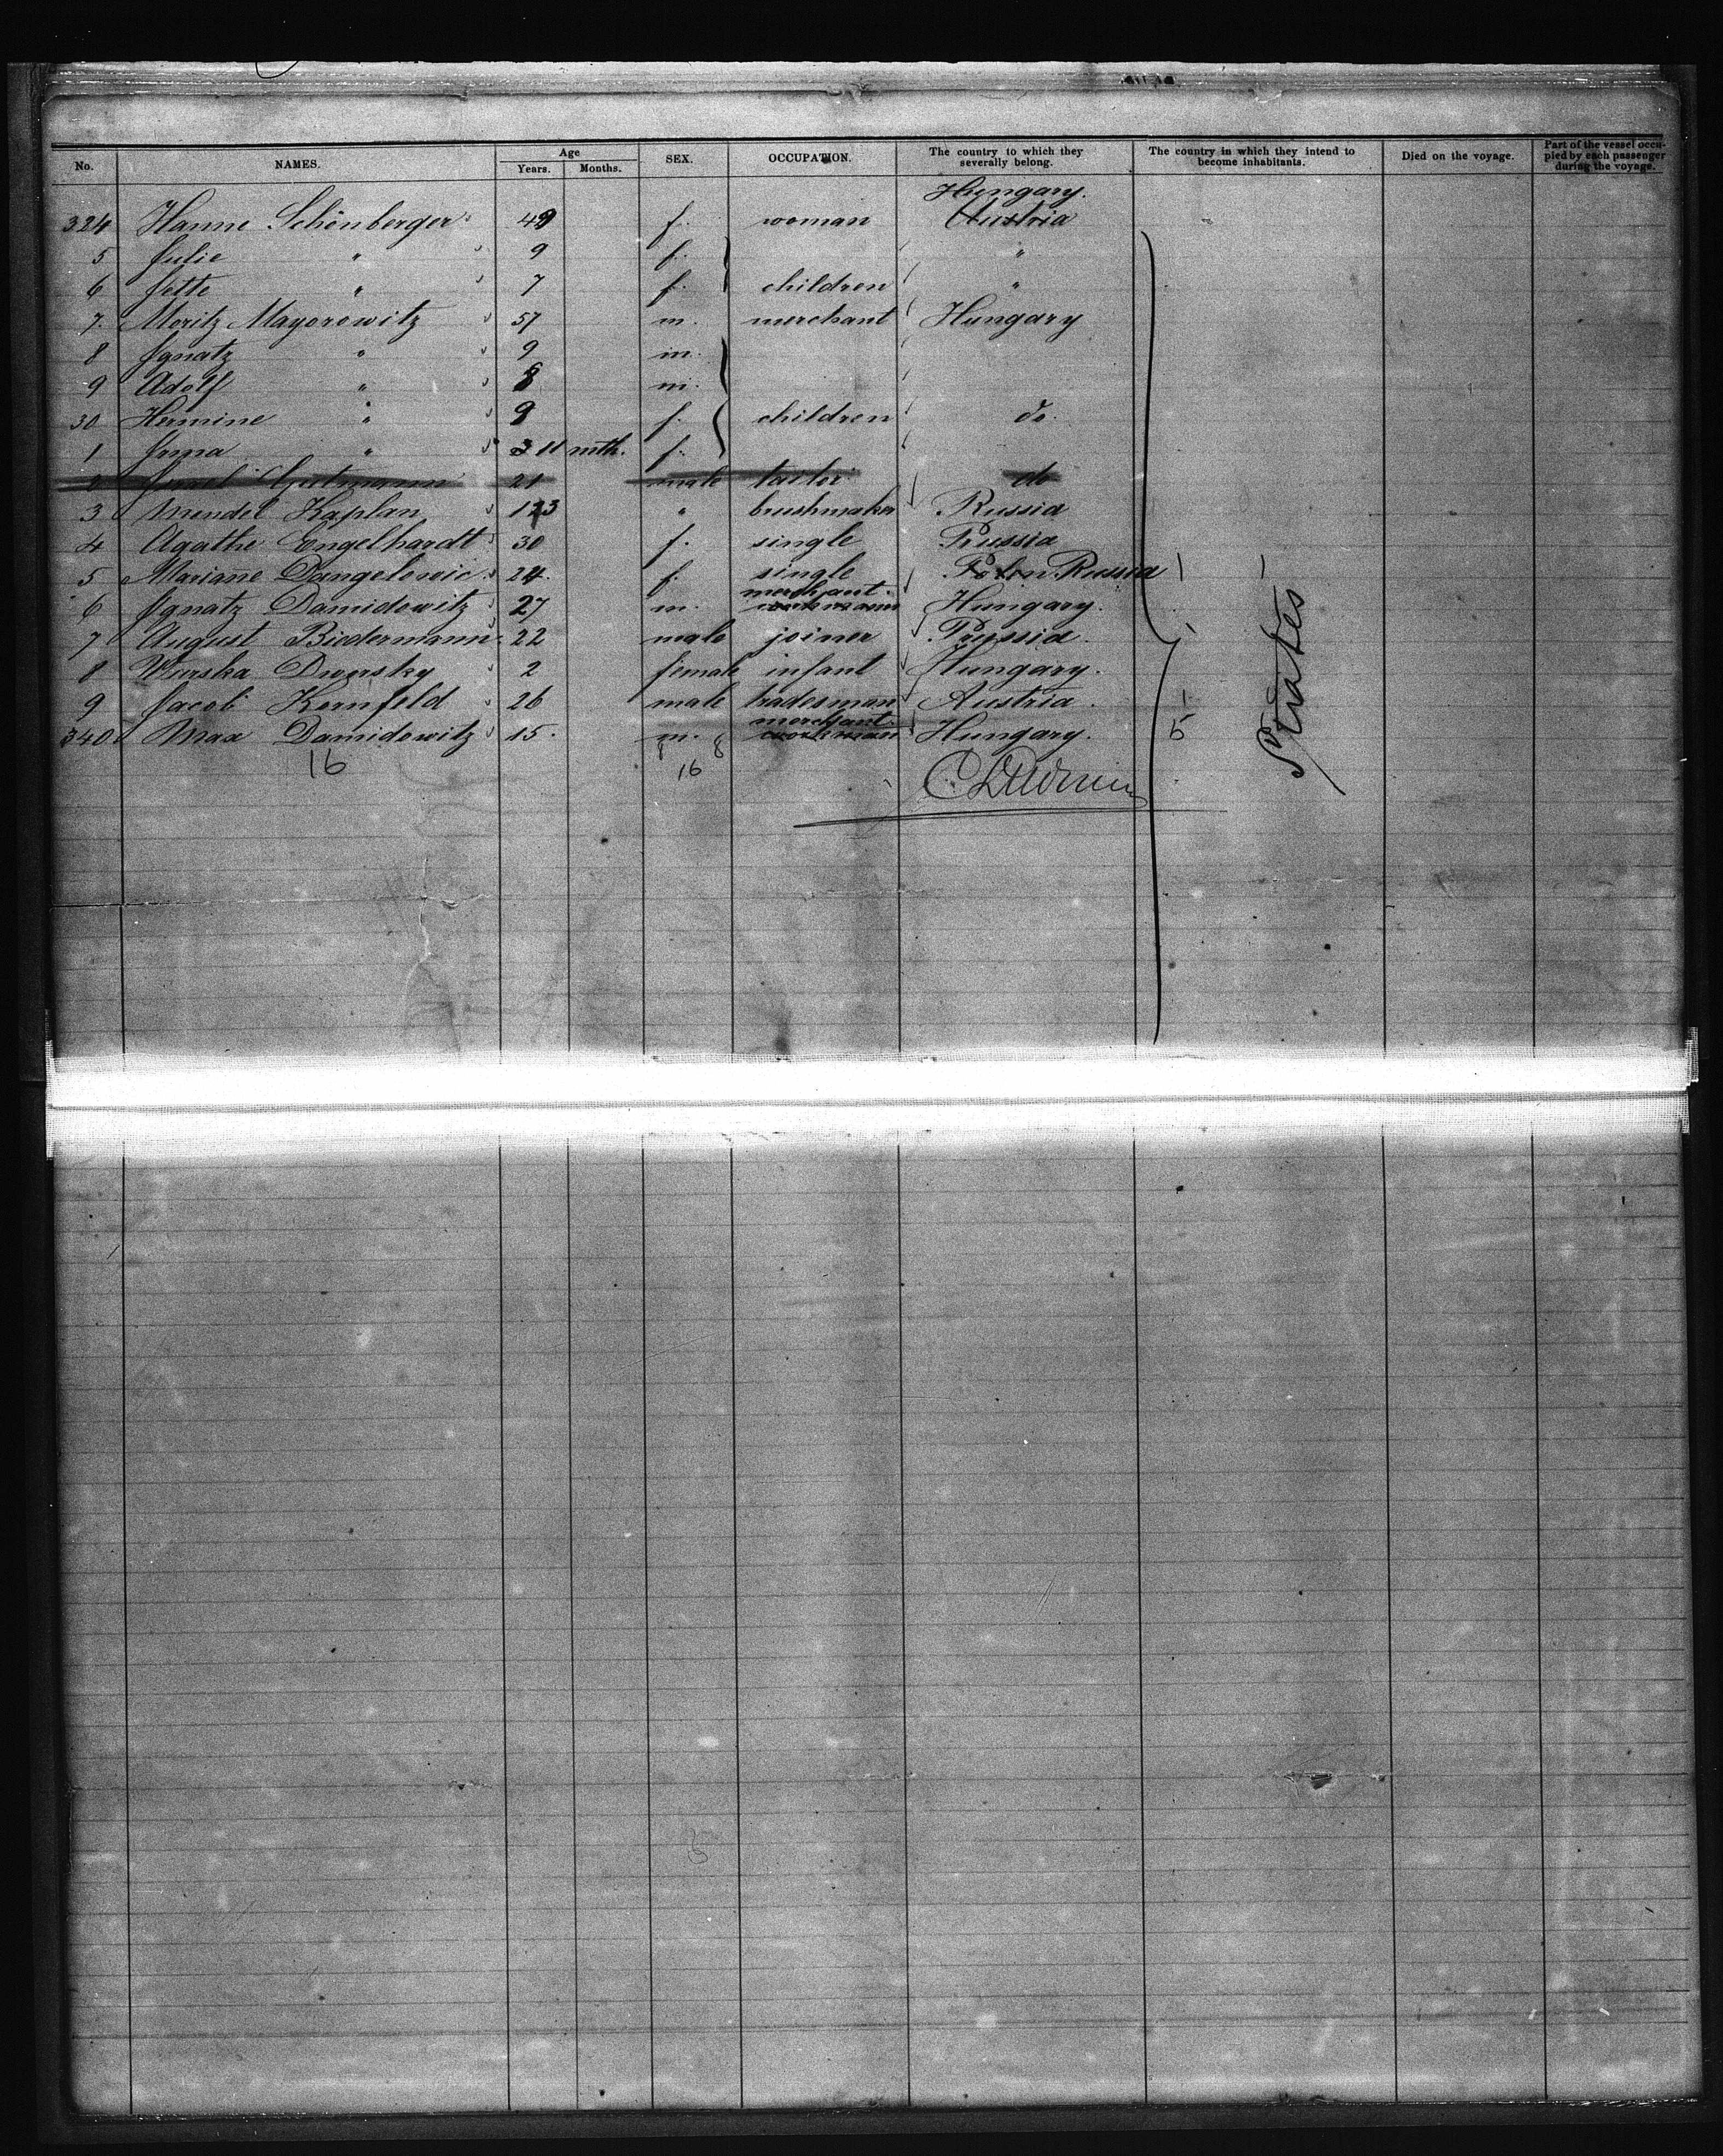 No. NAMES. Age Years. Months. SEX. OCCUPATION. The country to which they severally belong. The country in which they intend to become inhabitants. Died on the voyage. Part of the vessel occupied by each passenger during the voyage.
Hungary.
324 Hanne Schönberger 49 f. woman Austria
5 Julie " 9 f. "
6 Jette " 7 f. children "
7. Moritz Mayorowitz 57 m. merchant Hungary
8 Ignatz " 9 m.
9 Adolf " 8 m.
30 Hermine " 9 f. children do.
1 Irma " 11 mth. f.
2 Gutmann 21 male tailor do
3 Mendel Kaplan 23 " brushmaker Russia
4 Agathe Engelhardt 30 f. single Prussia
5 Marianne Dangelowic 24. f. single Polen Russia
merchant.
6 Ignatz Damidowitz 27 m. workmann Hungary.
7 August Biedermann 22 male joiner Prussia.
8 Dworsky 2 female infant Hungary.
9 Jacob Kornfeld 26 male tradesman Austria.
merchant.
340. Max Damidowitz 15. m. workman Hungary. 5
States
16 8 8
16